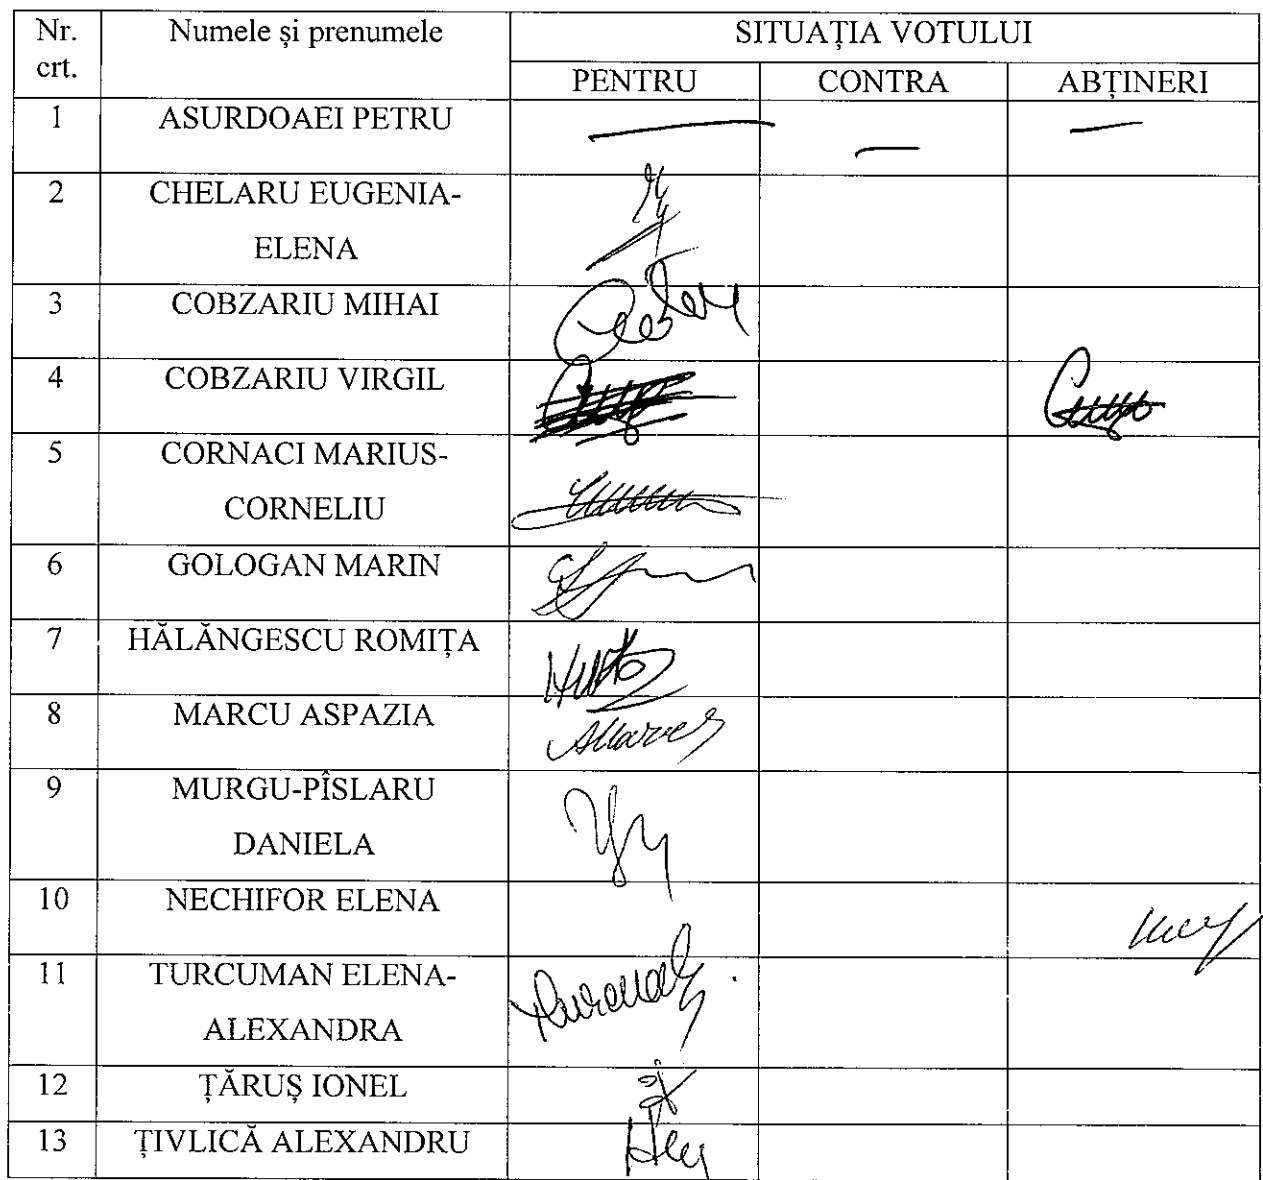 Nr. crt. Numele și prenumele SITUAȚIA VOTULUI
PENTRU CONTRA ABȚINERI
1 ASURDOAEI PETRU — — —
2 CHELARU EUGENIA-
ELENA
3 COBZARIU MIHAI
4 COBZARIU VIRGIL
5 CORNACI MARIUS-
CORNELIU
6 GOLOGAN MARIN
7 HĂLĂNGESCU ROMIȚA
8 MARCU ASPAZIA
9 MURGU-PÎSLARU
DANIELA
10 NECHIFOR ELENA
11 TURCUMAN ELENA-
ALEXANDRA
12 ȚĂRUȘ IONEL
13 ȚIVLICĂ ALEXANDRU